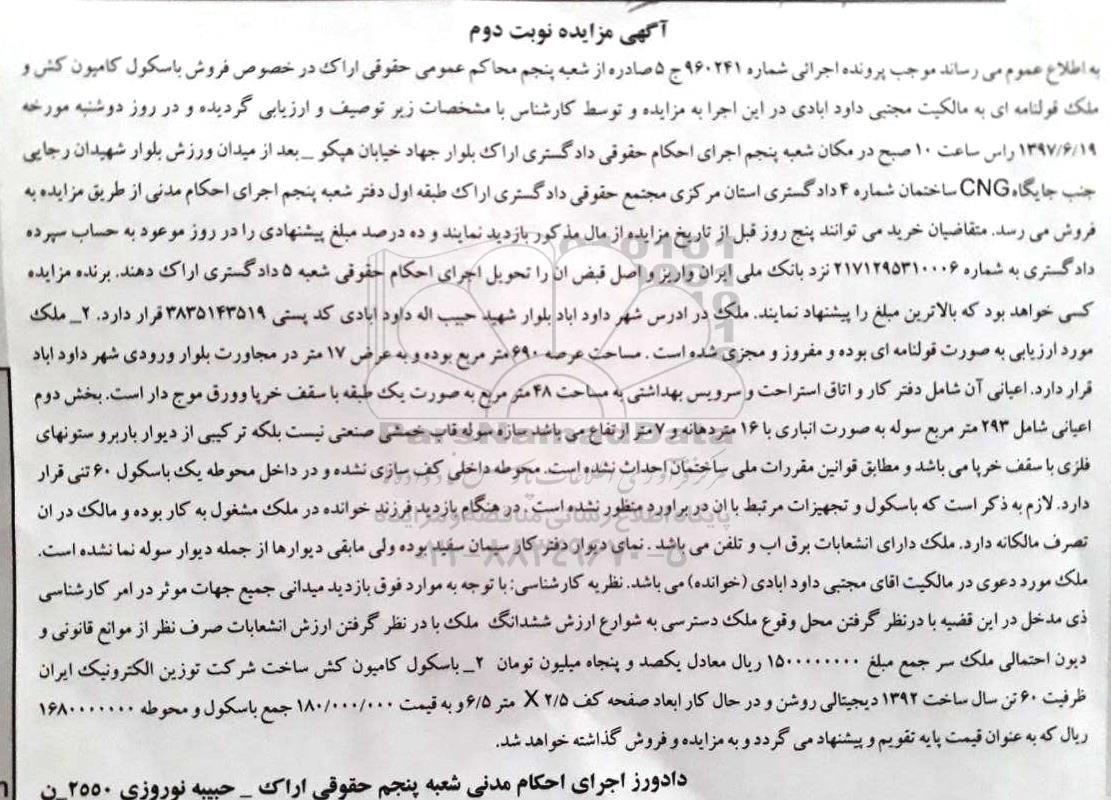 آگهی مزایده نوبت دوم
به اطلاع عموم می رساند موجب پرونده اجرائی شماره ۹۶۰۲۴۱ ج ۵ صادره از شعبه پنجم محاکم عمومی حقوقی اراک در خصوص فروش باسکول کامیون کش و
ملک قولنامه ای به مالکیت مجتبی داود ابادی در این اجرا به مزایده و توسط کارشناس با مشخصات زیر توصیف و ارزیابی گردیده و در روز دوشنبه مورخه
۱۳۹۷/۶/۱۹ راس ساعت ۱۰ صبح در مکان شعبه پنجم اجرای احکام حقوقی دادگستری اراک بلوار جهاد خیابان هپکو _ بعد از میدان ورزش بلوار شهیدان رجایی
جنب جایگاه CNG ساختمان شماره ۴ دادگستری استان مرکزی مجتمع حقوقی دادگستری اراک طبقه اول دفتر شعبه پنجم اجرای احکام مدنی از طریق مزایده به
فروش می رسد. متقاضیان خرید می توانند پنج روز قبل از تاریخ مزایده از مال مذکور بازدید نمایند و ده درصد مبلغ پیشنهادی را در روز موعود به حساب سپرده
دادگستری به شماره ۲۱۷۱۲۹۵۳۱۰۰۰۶ نزد بانک ملی ایران واریز و اصل قبض ان را تحویل اجرای احکام حقوقی شعبه ۵ دادگستری اراک دهند. برنده مزایده
کسی خواهد بود که بالاترین مبلغ را پیشنهاد نمایند. ملک در ادرس شهر داود اباد بلوار شهید حبیب اله داود ابادی کد پستی ۳۸۳۵۱۴۳۵۱۹ قرار دارد. ۲_ ملک
مورد ارزیابی به صورت قولنامه ای بوده و مفروز و مجزی شده است . مساحت عرصه ۶۹۰ متر مربع بوده و به عرض ۱۷ متر در مجاورت بلوار ورودی شهر داود اباد
قرار دارد. اعیانی آن شامل دفتر کار و اتاق استراحت و سرویس بهداشتی به مساحت ۴۸ متر مربع به صورت یک طبقه با سقف خرپا وورق موج دار است. بخش دوم
اعیانی شامل ۲۹۳ متر مربع سوله به صورت انباری با ۱۶ متر دهانه و ۷ متر ارتفاع می باشد سازه سوله قاب خمشی صنعتی نیست بلکه ترکیبی از دیوار باربر و ستونهای
فلزی با سقف خرپا می باشد و مطابق قوانین مقررات ملی ساختمان احداث نشده است. محوطه داخلی کف سازی نشده و در داخل محوطه یک باسکول ۶۰ تنی قرار
دارد. لازم به ذکر است که باسکول و تجهیزات مرتبط با ان در براورد منظور نشده است . در هنگام بازدید فرزند خوانده در ملک مشغول به کار بوده و مالک در ان
تصرف مالکانه دارد. ملک دارای انشعابات برق اب و تلفن می باشد . نمای دیوار دفتر کار سیمان سفید بوده ولی مابقی دیوارها از جمله دیوار سوله نما نشده است.
ملک مورد دعوی در مالکیت اقای مجتبی داود ابادی (خوانده) می باشد. نظریه کارشناسی: با توجه به موارد فوق بازدید میدانی جمیع جهات موثر در امر کارشناسی
ذی مدخل در این قضیه با درنظر گرفتن محل وقوع ملک دسترسی به شوارع ارزش ششدانگ ملک با در نظر گرفتن ارزش انشعابات صرف نظر از موانع قانونی و
دیون احتمالی ملک سر جمع مبلغ ۱۵۰۰۰۰۰۰۰۰ ریال معادل یکصد و پنجاه میلیون تومان ۲_ باسکول کامیون کش ساخت شرکت توزین الکترونیک ایران
ظرفیت ۶۰ تن سال ساخت ۱۳۹۲ دیجیتالی روشن و در حال کار ابعاد صفحه کف ۲/۵ X ۶/۵ متر و به قیمت ۱۸۰/۰۰۰/۰۰۰ جمع باسکول و محوطه ۱۶۸۰۰۰۰۰۰۰
ریال که به عنوان قیمت پایه تقویم و پیشنهاد می گردد و به مزایده و فروش گذاشته خواهد شد.
دادورز اجرای احکام مدنی شعبه پنجم حقوقی اراک _ حبیبه نوروزی ۲۵۵۰_ن
ParsNamadData
پایگاه اطلاع رسانی مناقصه و مزایده
۰۲۱-۸۸۳۴۹۶۷۰-۵